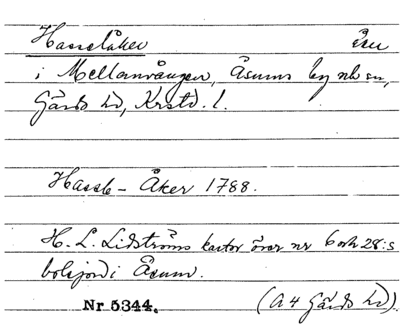 Hasselåker åker
i Mellanvången, Åsums by och sn,
Gärds hd, Krstd. l.
Hassle-Åker 1788.
H. L. Lidströms kartor över nr 6 och 28:s
bolsjord i Åsum.
Nr 5344. (A 4 Gärds hd)